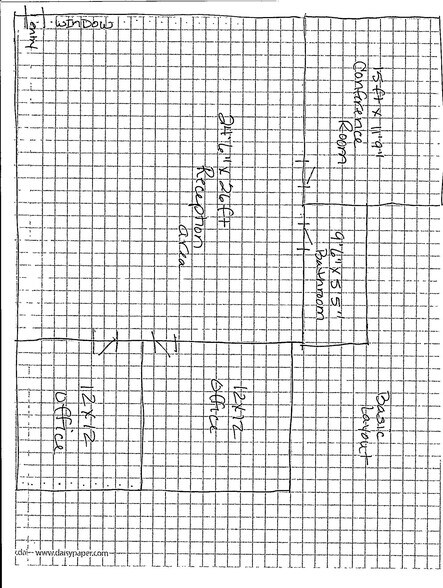 Entry
window
15 ft x 11'9"
Conference
Room
24'6" x 26 ft
Reception
area
9'6" x 5'5"
Bathroom
12x12
office
12x12
office
Basic
Layout
www.daisypaper.com